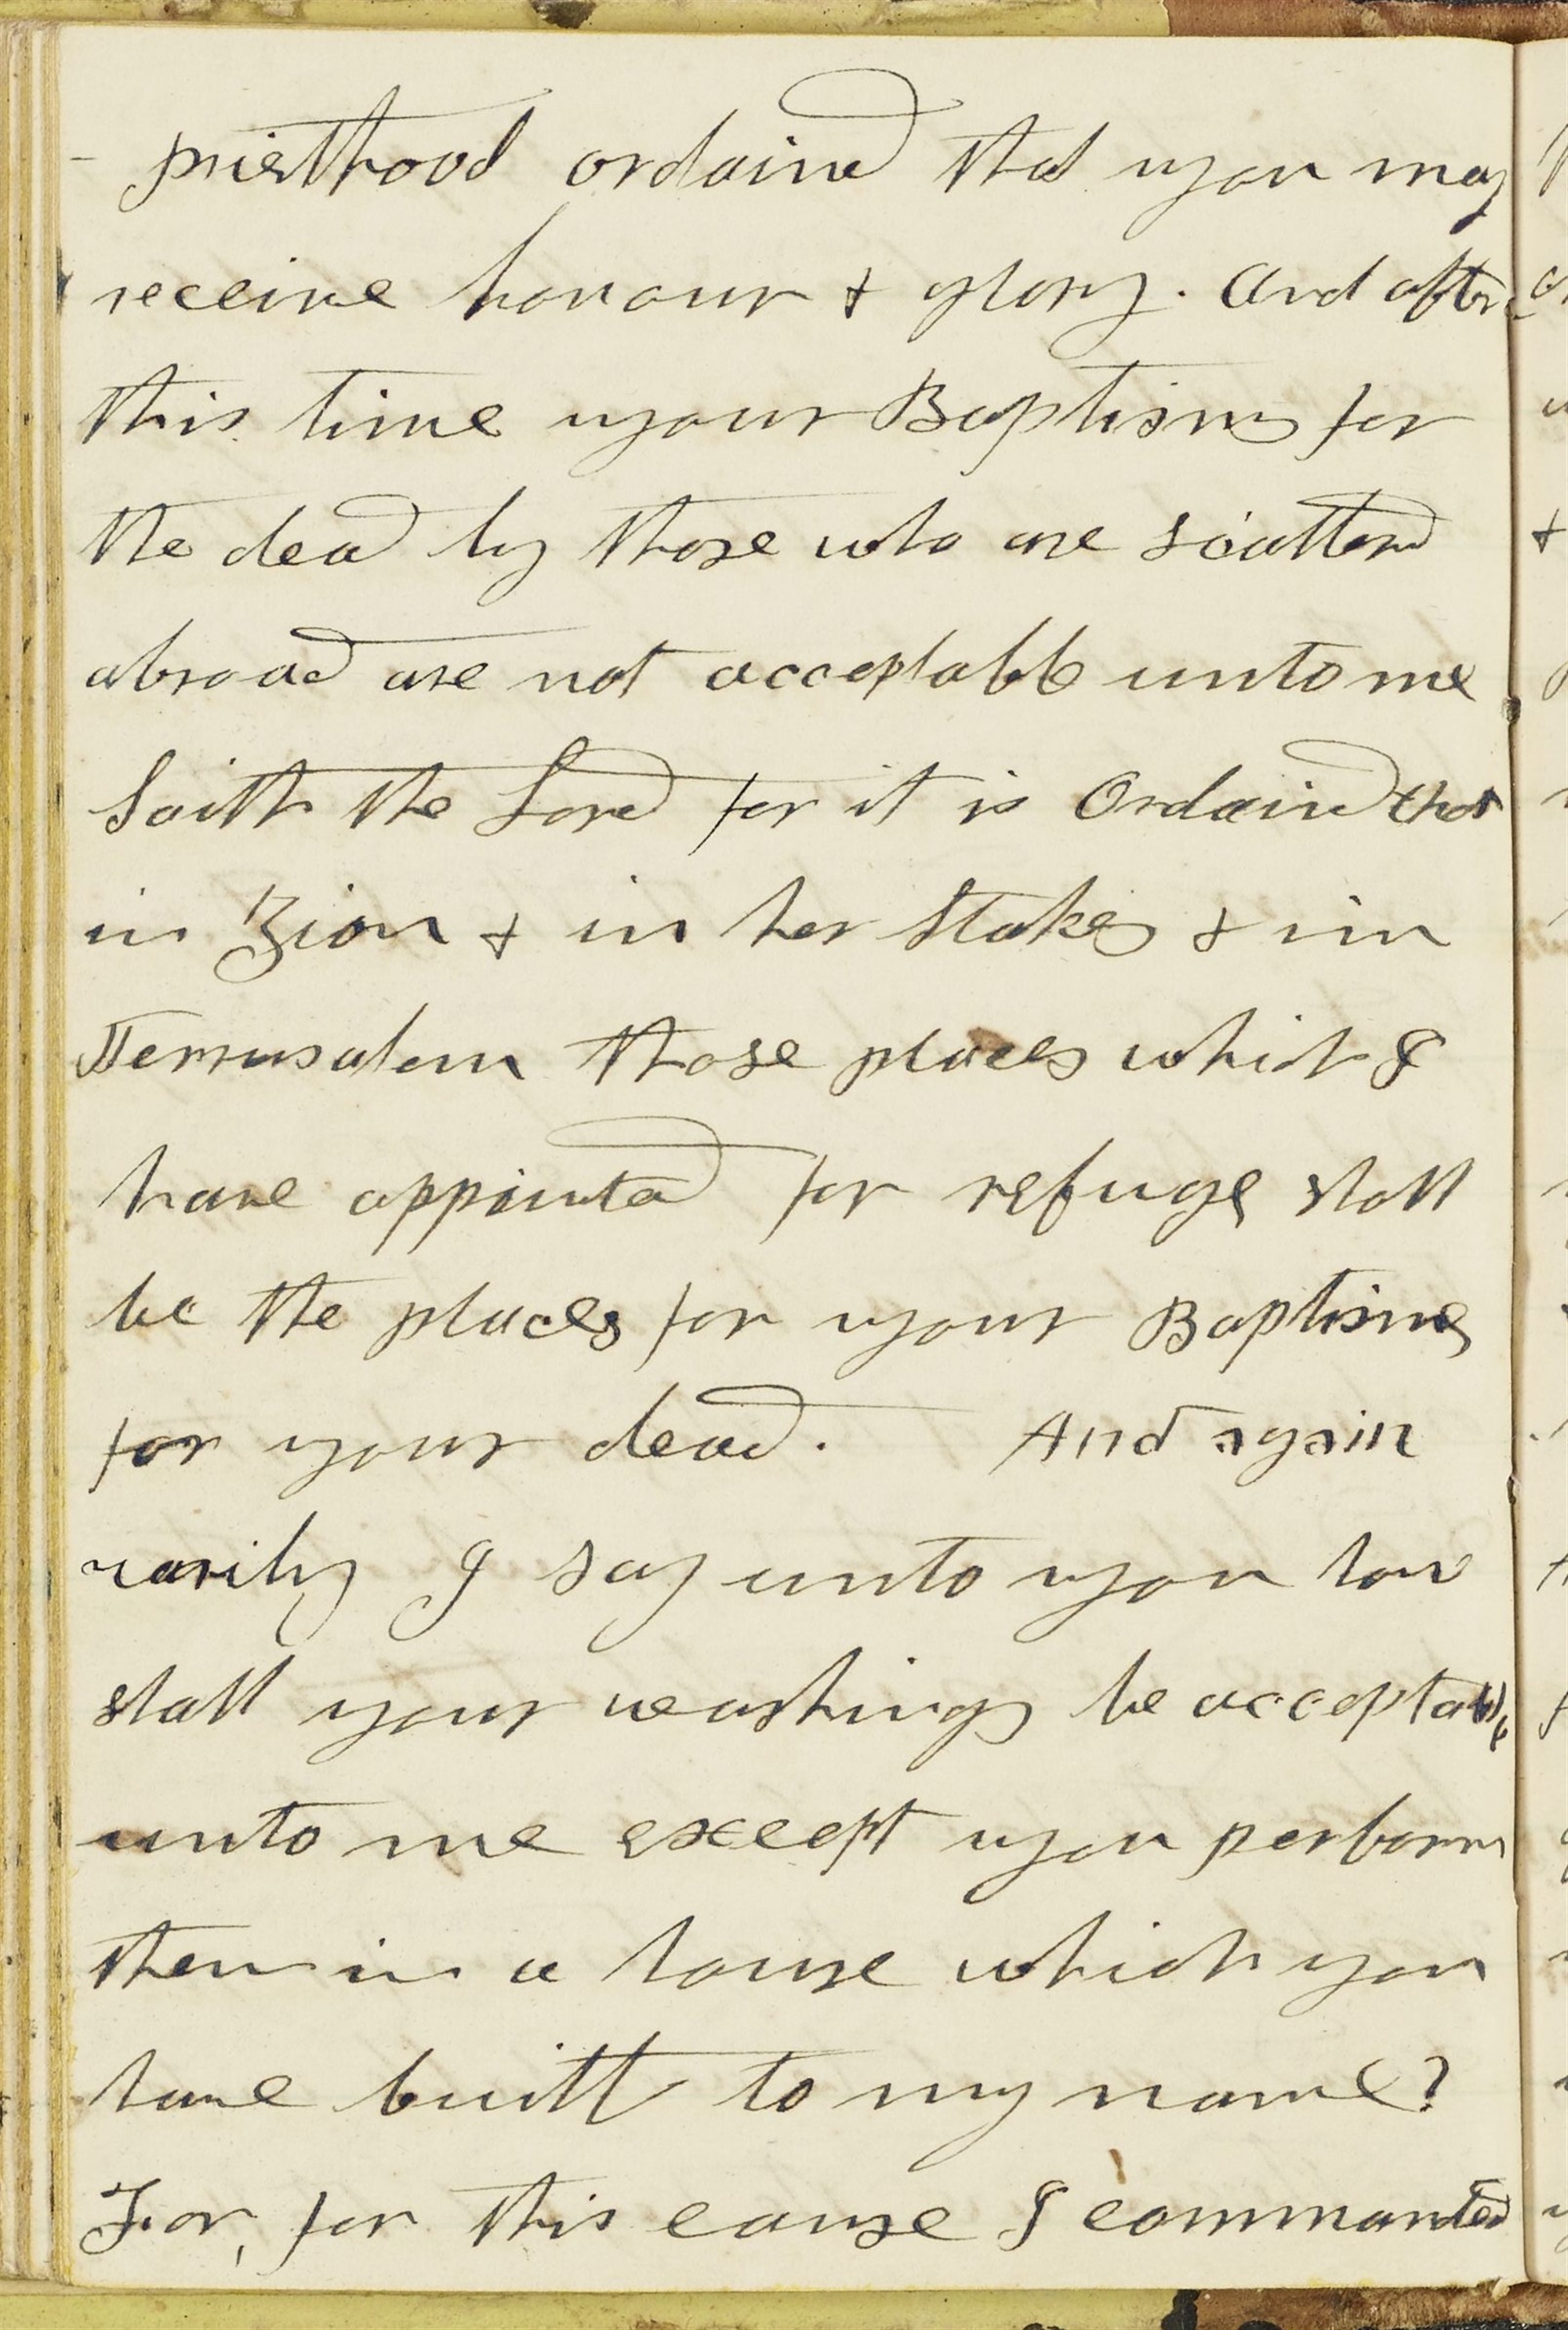 - priesthood ordained that you may
receive honour & glory. And after
this time your Baptisms for
the dead by those who are scattered
abroad are not acceptabble unto me
Saith the Lord for it is Ordained that
in Zion & in her Stakes & in
Jerrusalem those places which I
have appointed for refuge shall
be the places for your Baptisms
for your dead. And again
varily I say unto you how
shall your washings be acceptable
unto me except you perform
them in a house which you
have built to my name?
For, for this cause I commanded